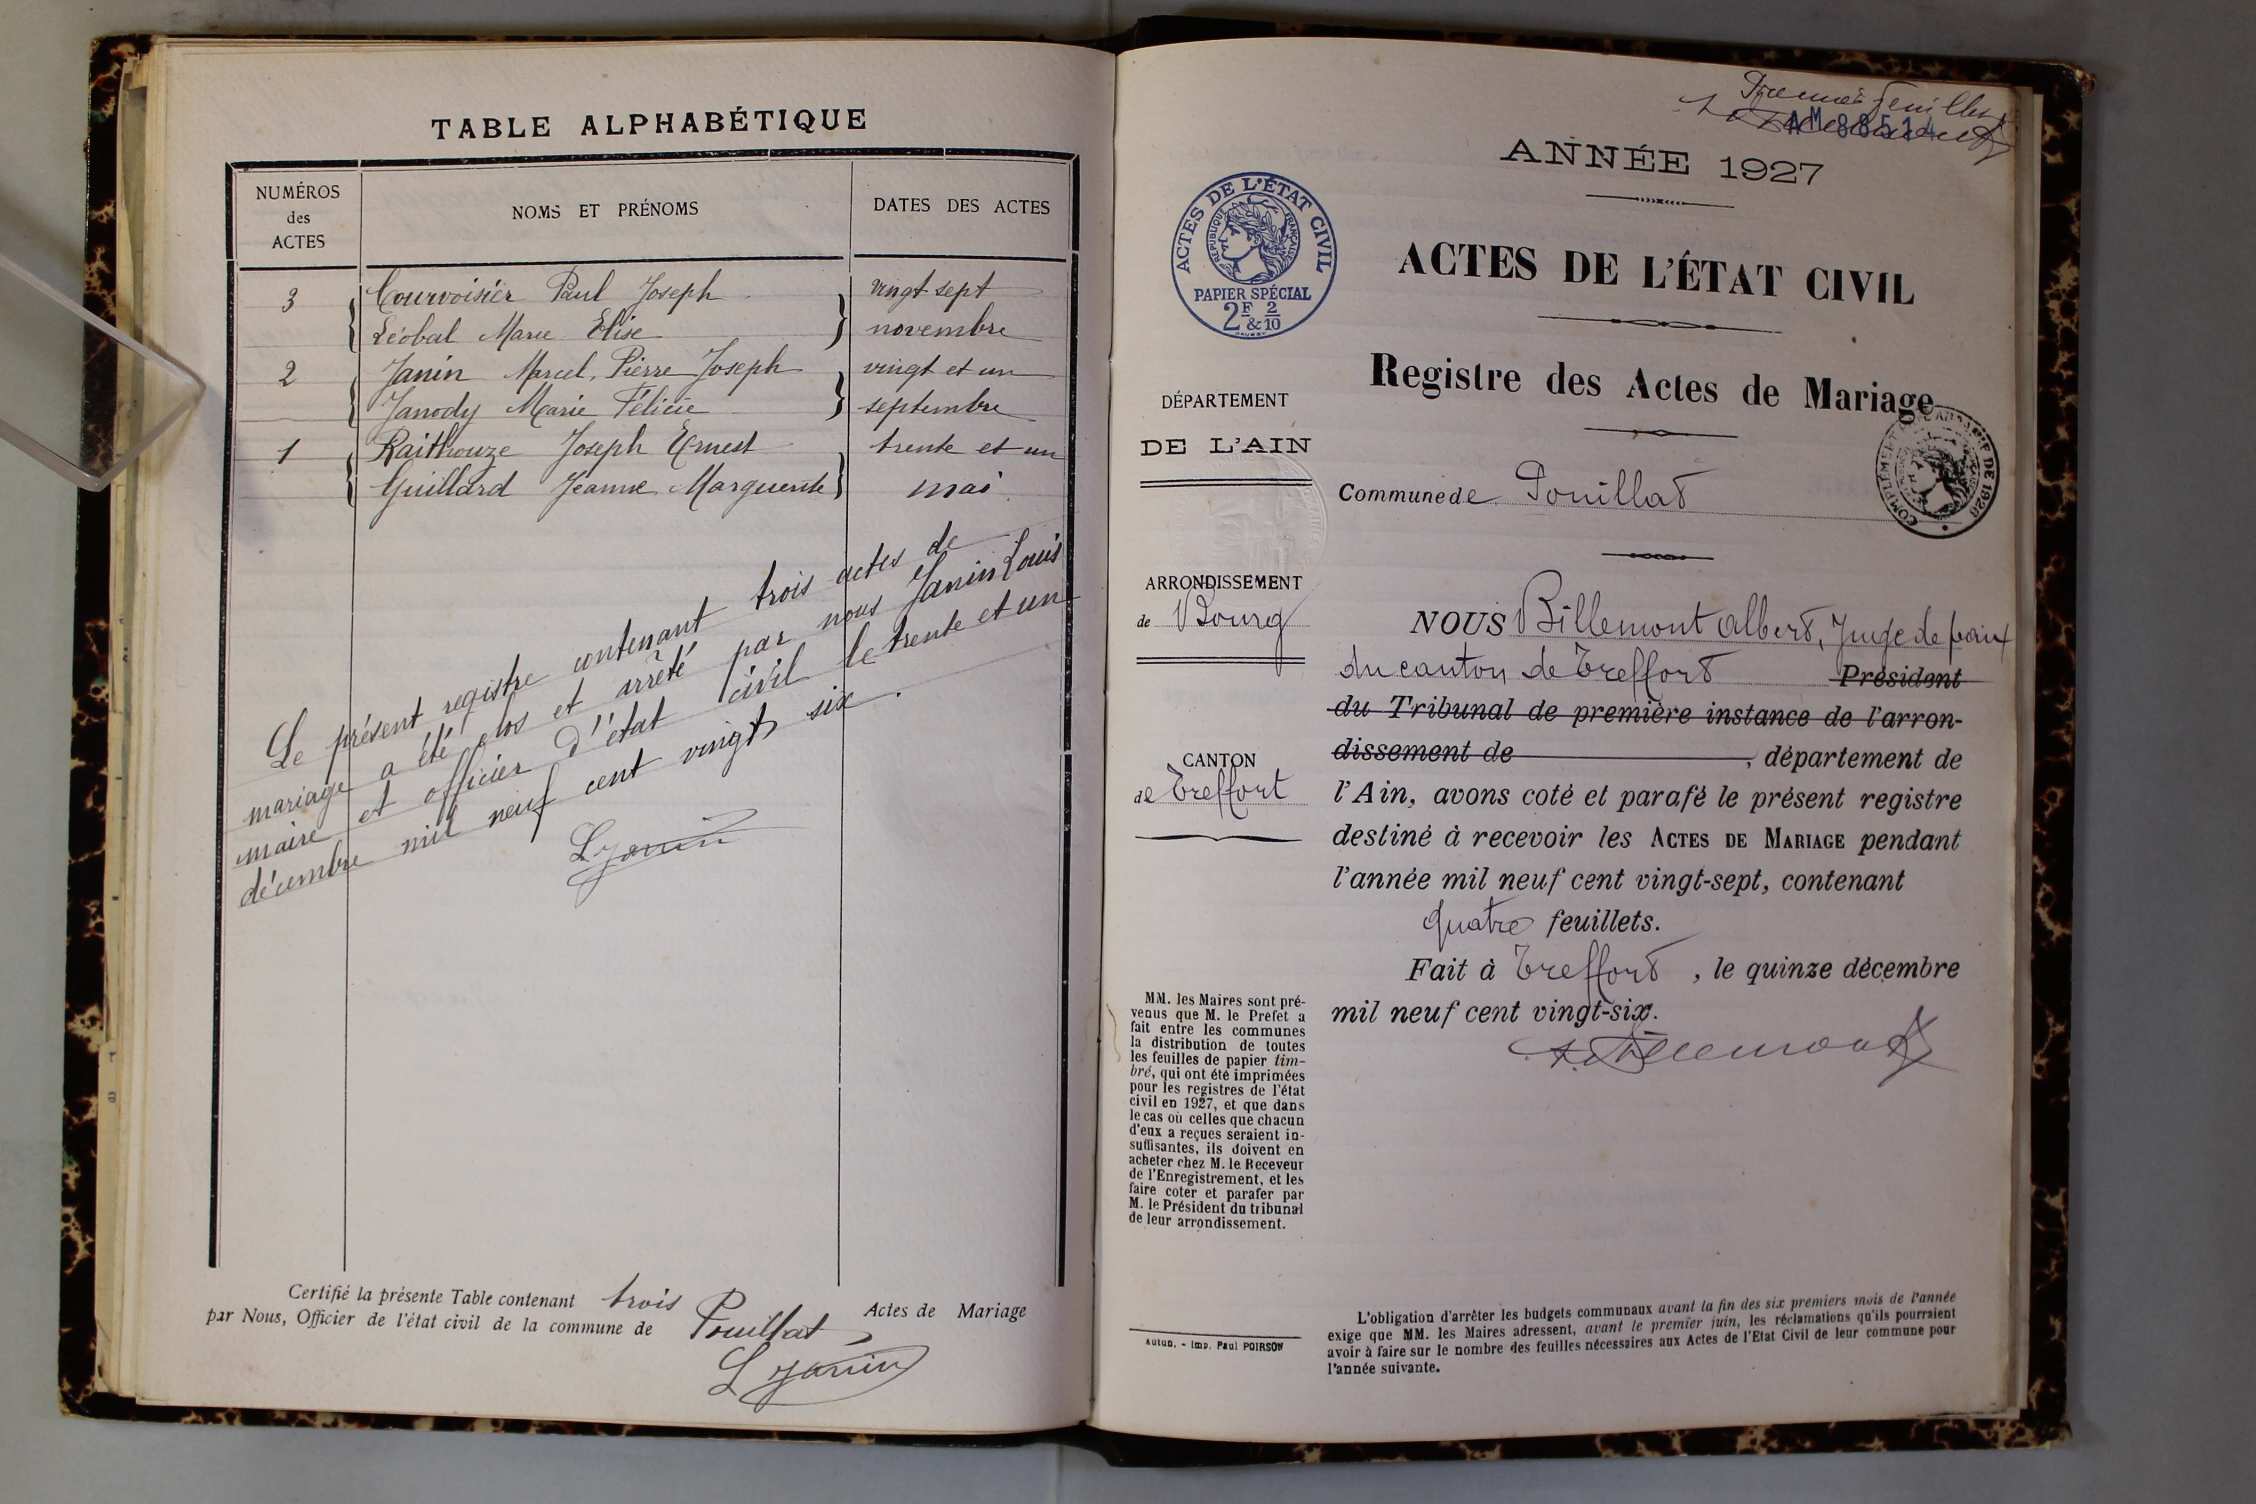 TABLE ALPHABÉTIQUE
NUMÉROS
des
ACTES
NOMS ET PRÉNOMS
DATES DES ACTES
3 Courvoisier Paul Joseph vingt sept
Léobal Marie Elise novembre
2 Janin Marcel, Pierre Joseph vingt et un
Janody Marie Félicie septembre
1 Raithouze Joseph Ernest trente et un
Guillard Jeanne Marguerite mai
Le présent registre contenant trois actes de
mariage a été clos et arrêté par nous Janin Louis
maire et officier d'état civil le trente et un
décembre mil neuf cent vingt six.
L Janin
Certifié la présente Table contenant trois Actes de Mariage
par Nous, Officier de l'état civil de la commune de Pouillat
L Janin
Premier feuillet
AM 88514
ANNÉE 1927
ACTES DE L'ÉTAT CIVIL
RÉPUBLIQUE FRANÇAISE
PAPIER SPÉCIAL
2F & 2/10
ACTES DE L'ÉTAT CIVIL
Registre des Actes de Mariage
DÉPARTEMENT
DE L'AIN
Commune de Pouillat
ARRONDISSEMENT
de Bourg
CANTON
de Treffort
NOUS Billemont Albert, Juge de paix
du canton de Treffort Président
du Tribunal de première instance de l'arron-
dissement de , département de
l'Ain, avons coté et parafé le présent registre
destiné à recevoir les ACTES DE MARIAGE pendant
l'année mil neuf cent vingt-sept, contenant
quatre feuillets.
Fait à Treffort, le quinze décembre
mil neuf cent vingt-six.
A. Billemont
MM. les Maires sont pré-
venus que M. le Préfet a
fait entre les communes
la distribution de toutes
les feuilles de papier tim-
bré, qui ont été imprimées
pour les registres de l'état
civil en 1927, et que dans
le cas où celles que chacun
d'eux a reçues seraient in-
suffisantes, ils doivent en
acheter chez M. le Receveur
de l'Enregistrement, et les
faire coter et parafer par
M. le Président du tribunal
de leur arrondissement.
Autun. - Imp. Paul POIRSON
L'obligation d'arrêter les budgets communaux avant la fin des six premiers mois de l'année
exige que MM. les Maires adressent, avant le premier juin, les réclamations qu'ils pourraient
avoir à faire sur le nombre des feuilles nécessaires aux Actes de l'Etat Civil de leur commune pour
l'année suivante.